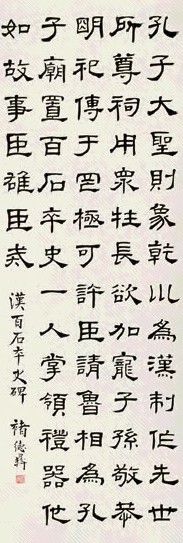 孔子大聖則象乾川為漢制作先世
所尊祠用衆牲長欲加寵子孫敬恭
明祀傳于罔極可許臣請魯相為孔
子廟置百石卒史一人掌領禮器他
如故事臣雄臣戒
漢百石卒史碑 褚德彝